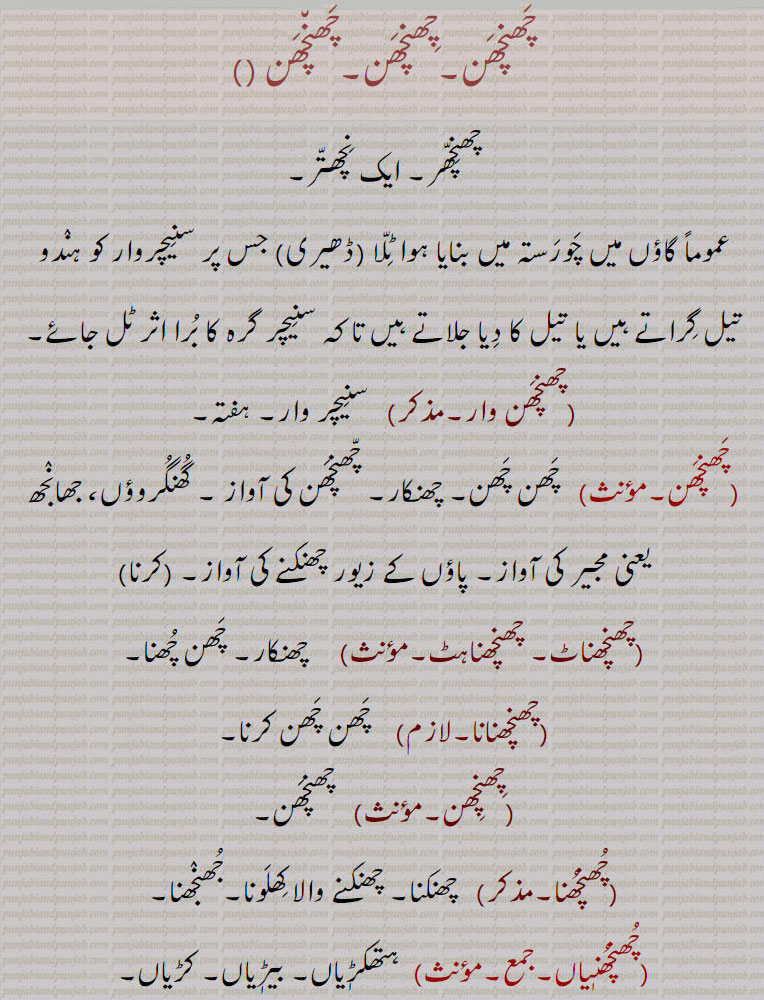 چَھنچَھن۔ چِھنچَھن۔ چَھنّچَھن ()
چھنِچّھر۔ ایک نِچھتّر۔
عموماً گاؤں میں چَورَستہ میں بنایا ہوا ٹِلّا (ڈھیری) جس پر سنیچروار کو ہندو
تیل گِراتے ہیں یا تیل کا دِیا جلاتے ہیں تاکہ سنیچر گرہ کا بُرا اثر ٹل جائے۔
(چھنچَھن وار۔مذکر) سنیچر وار۔ ہفتہ۔
(چَھنچَھن۔مؤنث) چَھن چَھن۔ چھنکار۔ چّھنچَھن کی آواز ۔ گُھنگُروؤں، جھانجھ
یعنی مجیر کی آواز۔ پاؤں کے زیور چھنکنے کی آواز۔ (کرنا)
(چھنچھناٹ۔ چھنچھناہٹ۔مؤنث) چھنکار۔ چَھن چُھنا۔
(چھنچھنانا۔لازم) چَھن چَھن کرنا۔
(چِھنچِھن۔مؤنث) چھنچَھن۔
(چُھنچُھنا۔مذکر) چھنکنا۔ چھنکنے والا کِھلَونا۔ جُھنجُھنا۔
(چُھنچُھنیاں۔جمع۔مؤنث) ہتھکڑیاں۔ بیڑیاں۔ کڑیاں۔